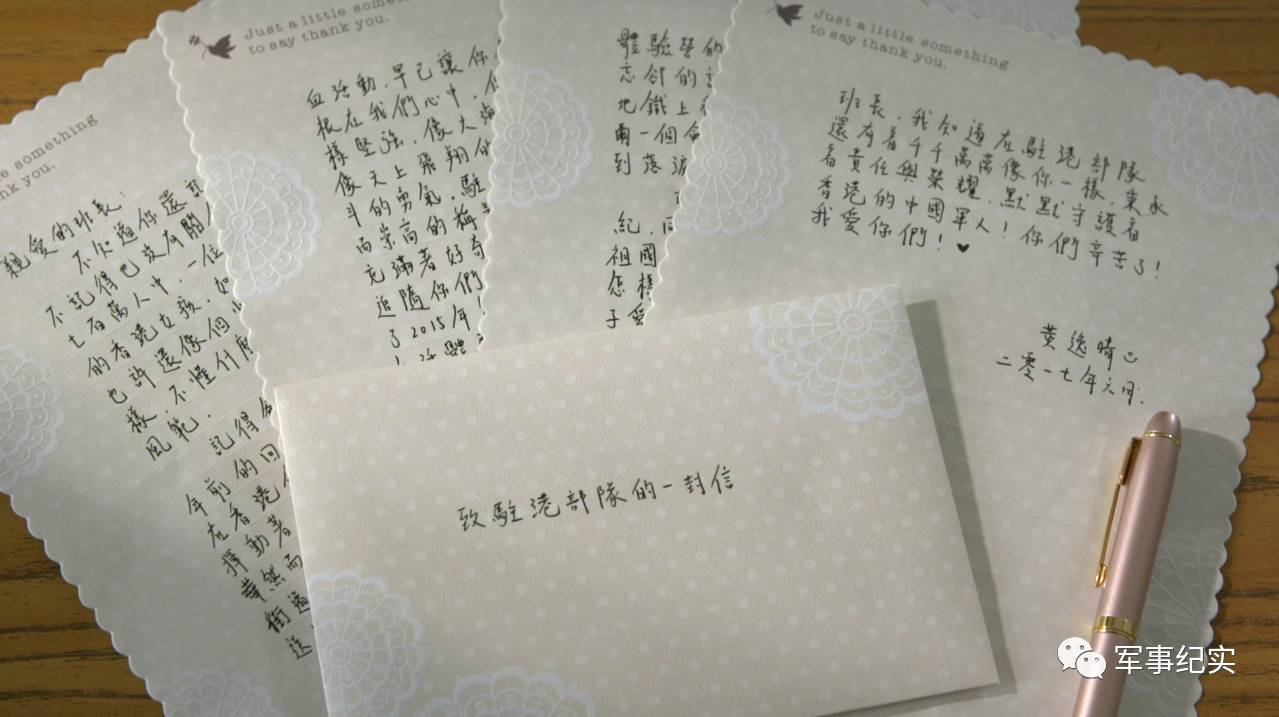 e something
nk you.
親愛的班長:
不知道你還記
不記得也沒有關
七百萬人中,一位
的香港女孩,如
也許還像個
樣,不懂什麼
風範,
記得
年前的回
在香港
揮動著
華然而
街道
送
Just a little something
to say thank you.
血活動,早已讓你
根在我們心中,
樣堅強,像大海
像天上飛翔的
斗的勇氣,駐
而崇高的稱
充滿著好奇
追隨你們
了2015年
體驗營的
忘卻的
地鐵上
兩一個
到落淚
紀,回
祖國
怎樣
子愛
Just a little something
to say thank you.
班長,我知道在駐港部隊
還有着千千萬萬像你一樣,秉承
着責任與榮耀,默默守護着
香港的中國軍人!你們辛苦了!
我愛你們!♥
黃逸晴
二零一七年六月.
致駐港部隊的一封信
军事纪实